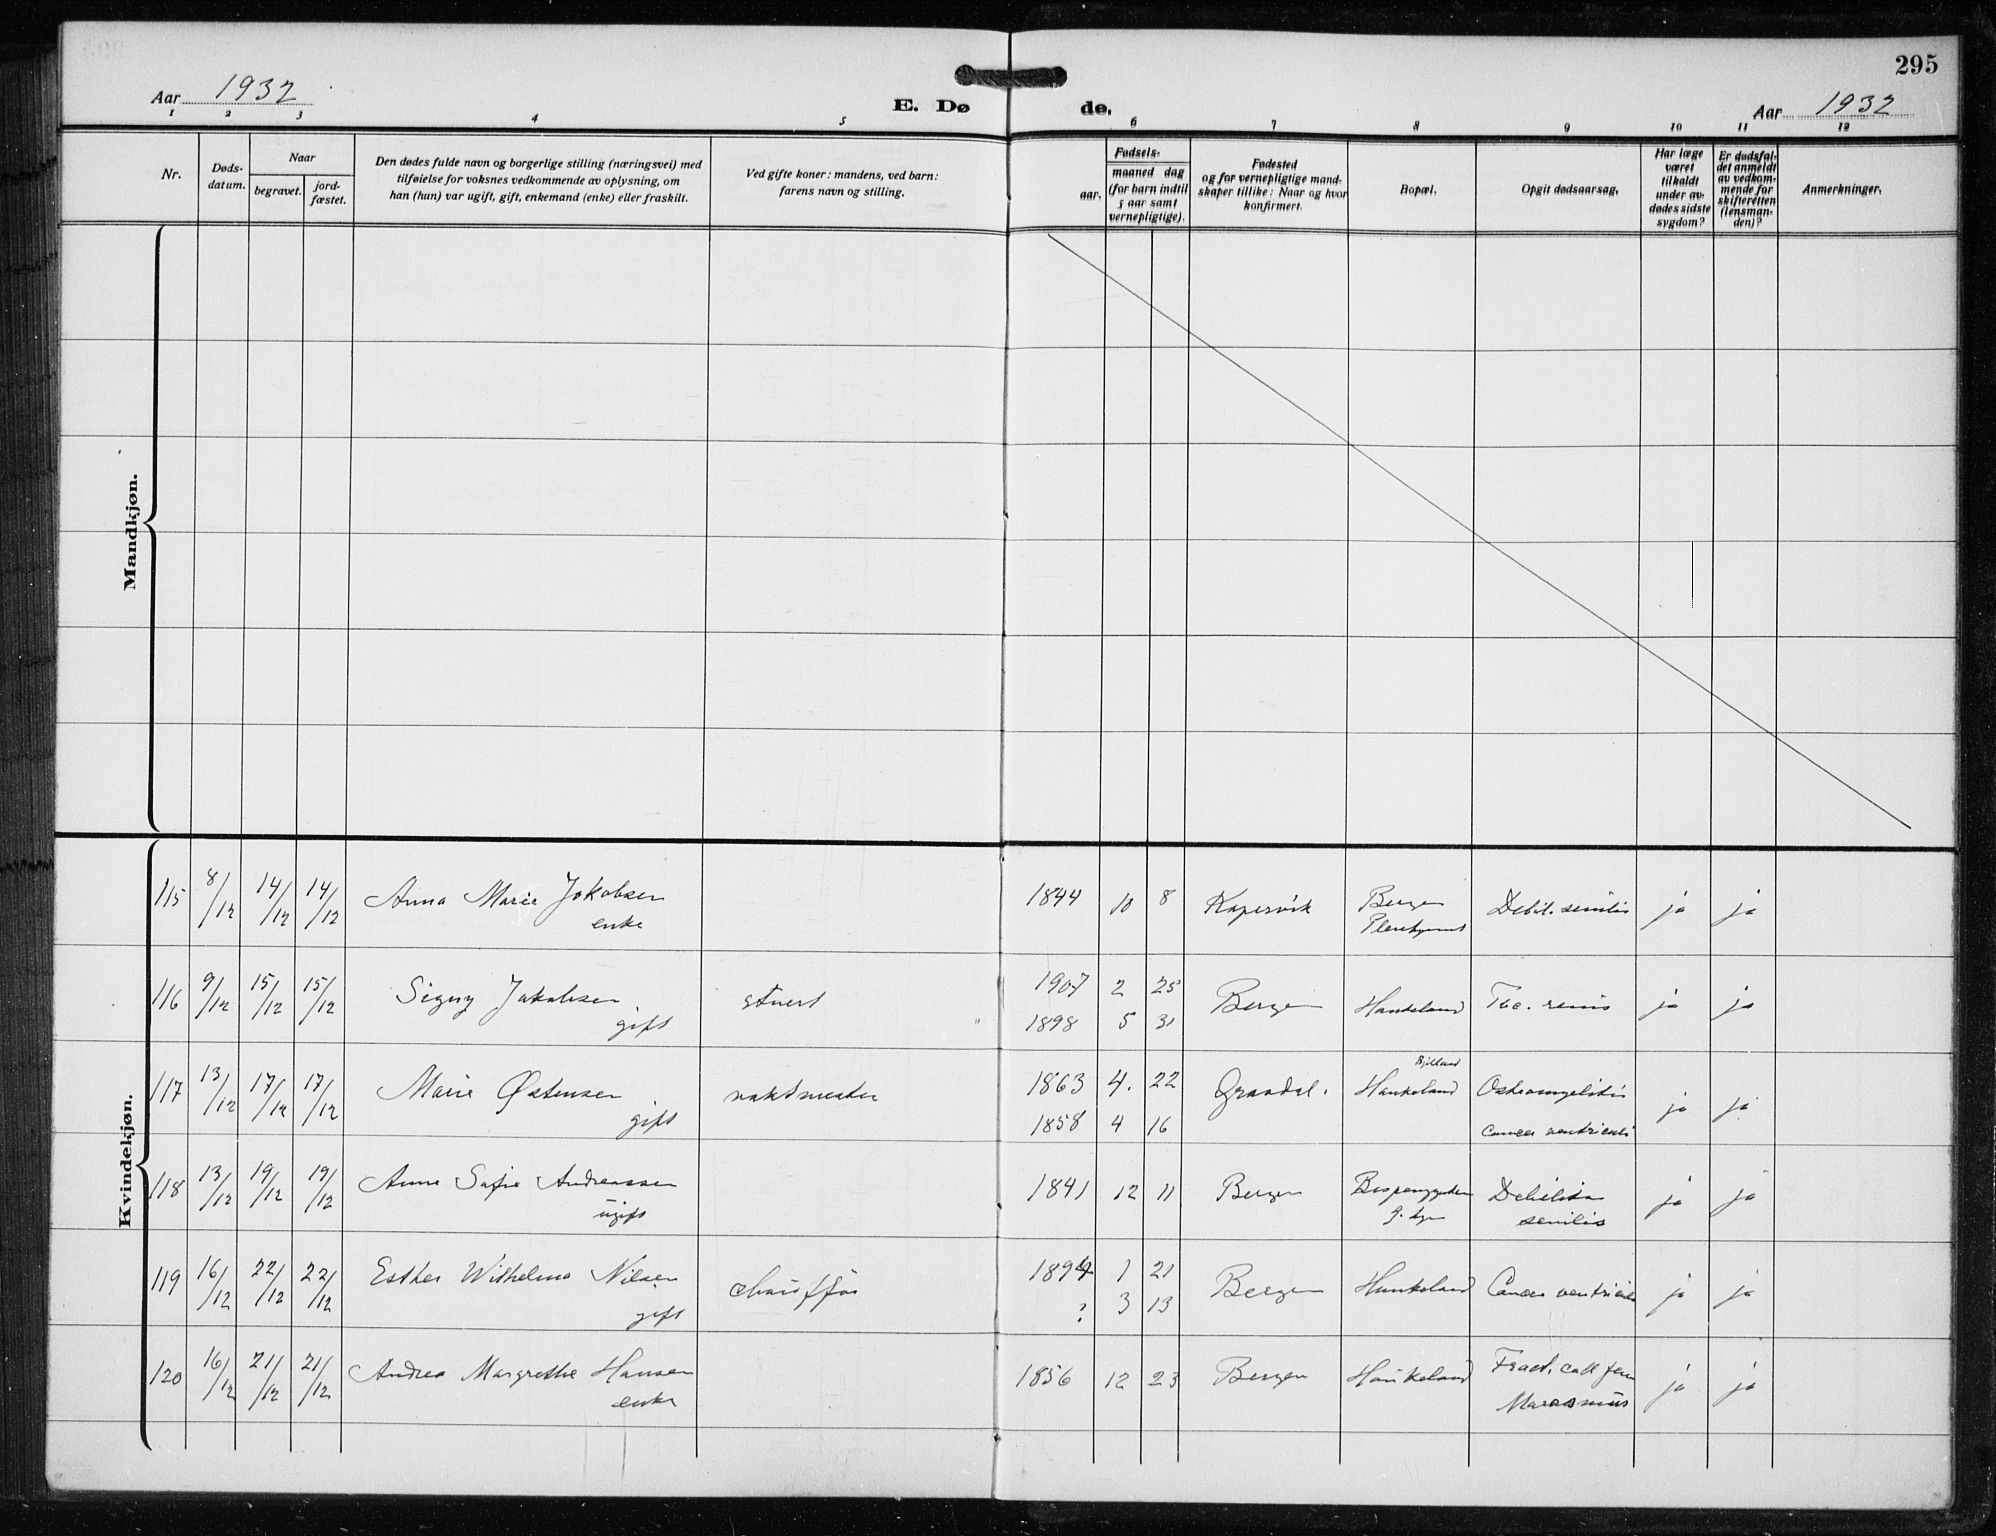 295
Aar 1932
E. Dø de.
Aar 1932
1 2 3 4 5 6 7 8 9 10 11 12
Nr.
Døds-
datum.
Naar
begravet.
jord-
fæstet.
Den dødes fulde navn og borgerlige stilling (næringsvei) med
tilføielse for voksnes vedkommende av oplysning, om
han (hun) var ugift, gift, enkemand (enke) eller fraskilt.
Ved gifte koner: mandens, ved barn:
farens navn og stilling.
Fødsels-
aar.
maaned dag
(for barn indtil
5 aar samt
vernepligtige).
Fødested
og for vernepligtige mand-
skaper tillike: Naar og hvor
konfirmert.
Bopæl.
Opgit dødsaarsag.
Har læge
været
tilkaldt
under av-
dødes sidste
sygdom?
Er dødsfal-
det anmeldt
av vedkom-
mende for
skifteretten
(lensman-
den)?
Anmerkninger.
Mandkjøn.
Kvindekjøn.
115 8/12 14/12 14/12 Anna Marie Jakobsen 1844 10 8 Kopervik Bergen Debil. senilis ja ja
enke
116 9/12 15/12 15/12 Signy Jakobsen stuert 1907 2 25 Bergen Haukeland Tbc. renis ja ja
gift 1898 5 31
117 13/12 17/12 17/12 Marie Østensen vaktmester 1863 4. 22 Haukeland Osteomyelitis ja ja
gift 1858 4 16 Cancer ventriculi
118 13/12 19/12 19/12 Anne Sofie Andreassen 1841 12 11 Bergen Debilitas ja ja
ugift senilis
119 16/12 22/12 22/12 Esther Wilhelma Nilsen chauffør 1894 1 21 Bergen Haukeland Cancer ventriculi ja ja
gift ? 3 13
120 16/12 21/12 21/12 Andrea Margrethe Hansen 1856 12 23 Bergen Haukeland Fract. coll fem ja ja
enke Marasmus